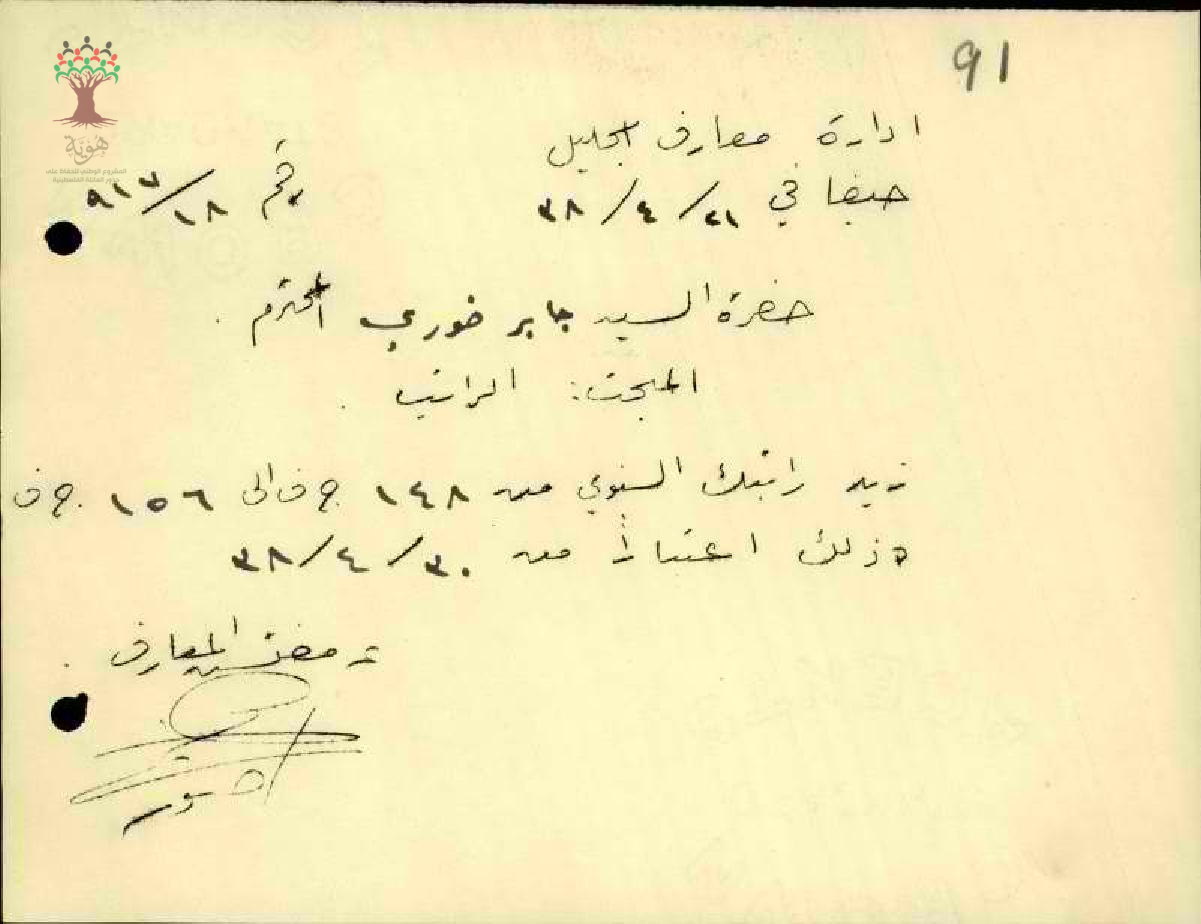 91
هوية
المشروع الوطني للحفاظ على
جذور العائلة الفلسطينية
ادارة معارف الجليل
حيفا في ٢١/٤/٣٨ رقم ٩١٧/١٨
حضرة السيد جابر خوري المحترم .
المبحث: الراتب .
زيد راتبك السنوي من ١٤٨ ج ف الى ١٥٦ ج ف
وذلك اعتباراً من ٣٠/٤/٣٨
مفتش المعارف .